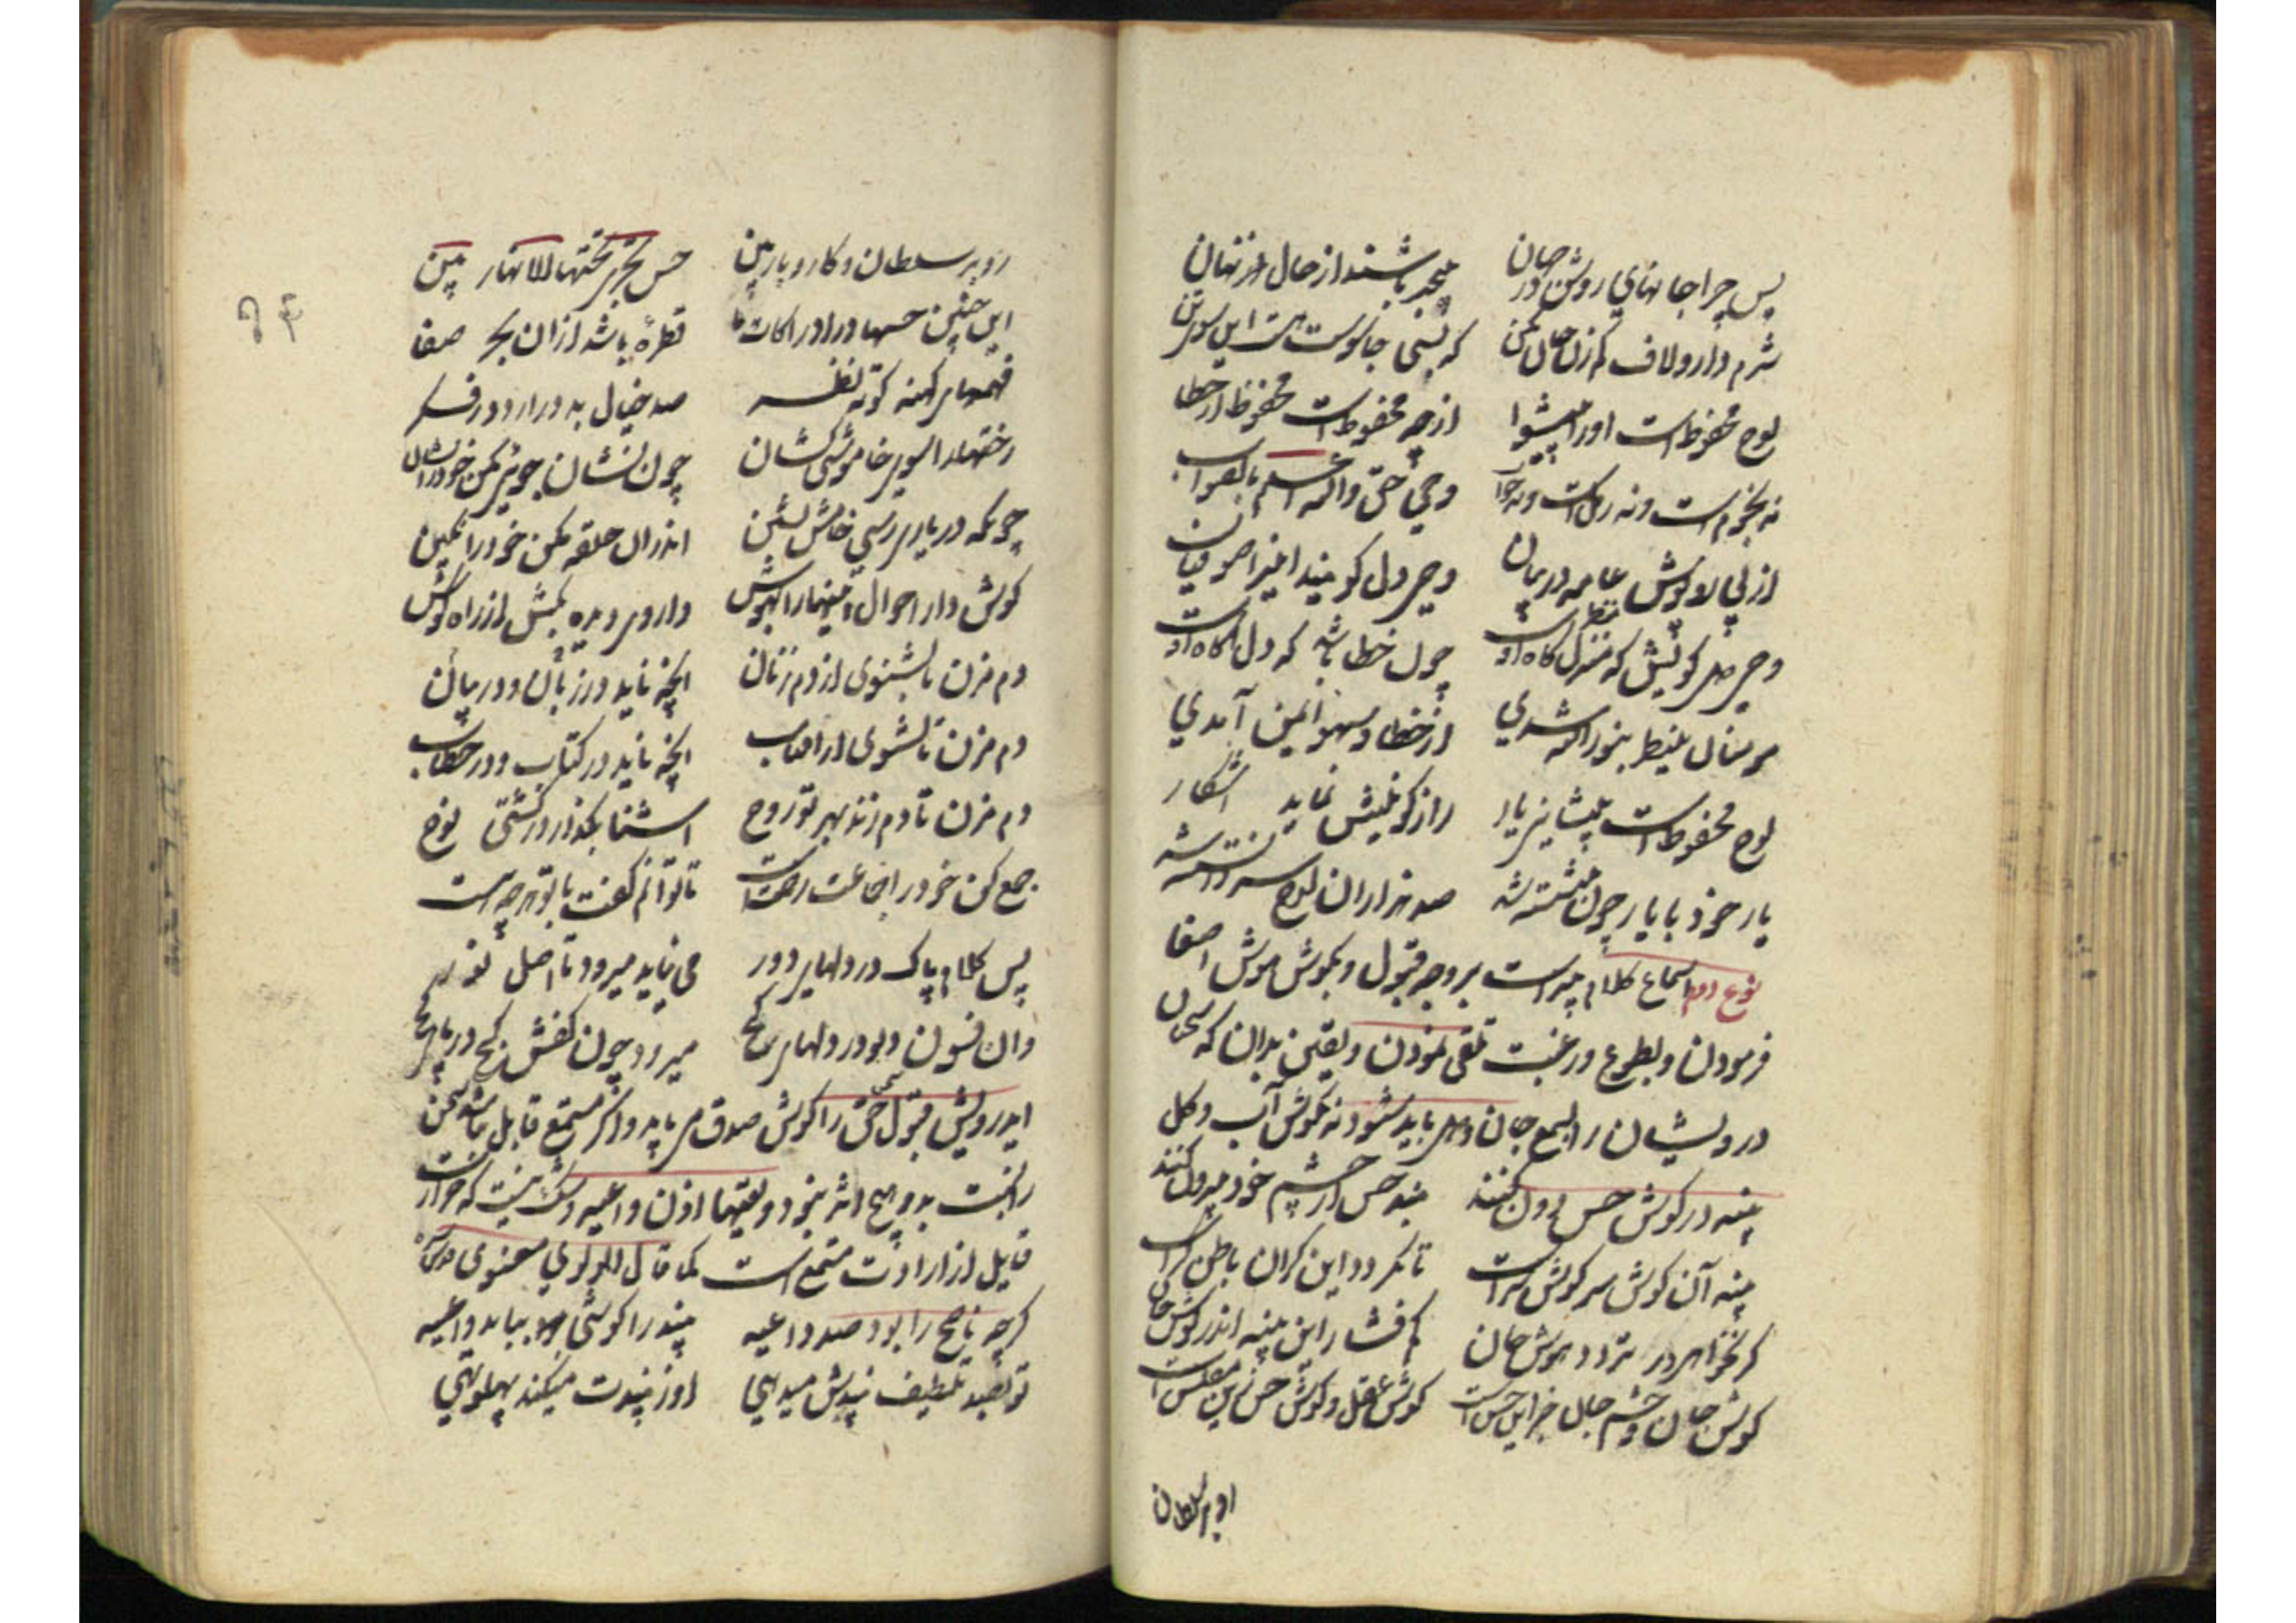 پس چرا جانهای روشن در جهان بیخبر باشند از حال نهان
شرم دار و لاف کم زن جان مکن که بسی جاسوس هست این سوی تن
لوح محفوظ است او را پیشوا از چه محفوظ است محفوظ از خطا
نه نجوم است و نه رمل است و نه خواب وحی حق والله اعلم بالصواب
از پی روپوش عامه در بیان وحی دل گویند آنرا صوفیان
وحی دل گویش که منظرگاه اوست چون خطا باشد که دل آگاه اوست
مومنان ینظر بنور الله شدی از خطا و سهو ایمن آمدی
لوح محفوظ است پیشانی یار راز کونینش نماید آشکار
یار خود با یار چون بنشسته شد صد هزاران لوح سر دانسته شد
نوع دوم اسماع کلام پیر است بر وجه قبول و بگوش هوش اصغا
فرمودن و بطوع و رغبت تلقی نمودن و یقین بدان که سخن
درویشان را بسمع جان و دل باید شنود نه بگوش آب و گل
پنبه در گوش حس دون کنید بند حس از چشم خود بیرون کنید
پنبه آن گوش سر گوش سر است تا نگردد این کران باطن کر است
گر نخواهی در تردد هوش جان کم فشار این پنبه اندر گوش جان
گوش جان و چشم جان جز این حس است گوش عقل و گوش حس زین مفلس است
رو بر سلطان و کار و بار بین حس تجری تحتها الانهار بین
این چنین حسها و ادراکات ما قطره باشد از آن بحر صفا
فهمهای کهنه کوته نظر صد خیال بد در آرد در فکر
رختها را سوی خاموشی کشان چون نشان جویی مکن خود را نشان
چونکه در یاری رسی خامش نشین اندران حلقه مکن خود را نگین
گوش دار احوال اینها را بهوش داروی دیده بکش از راه گوش
دم مزن تا بشنوی از دم زنان آنچه ناید در زبان و در بیان
دم مزن تا بشنوی از آفتاب آنچه ناید در کتاب و در خطاب
دم مزن تا دم زند بهر تو روح آشنا بگذار در کشتی نوح
جمع کن خود را جماعت رحمت است تا توانم گفت با تو هر چه هست
پس کلام پاک در دلهای دور می نیاید میرود تا اصل نور
وان فسون دیو در دلهای کج میرود چون کفش کج در پای کج
ایدرویش قبول سخن حق را گوش صدق می باید و اگر مستمع قابل نباشد سخن
قایل از ارادت مستمع است کما قال المولوی معنوی
گرچه ناصح را بود صد داعیه پند را گوشی بباید واعیه
تو بصد تلطیف پندش میدهی او ز پندت میکند پهلو تهی
او بر سلطان